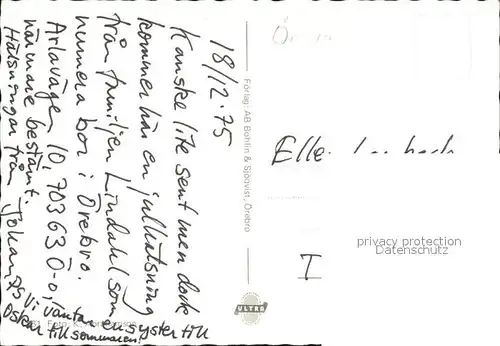 18/12-75
Kanske lite sent men dock
kommer här en julhälsning
från familjen Lindahl som
numera bor i Örebro.
Arlavägen 10, 703 63 Ö-o,
närmare bestämt.
Hälsningar från Johan,
PS Vi väntar en syster till
Oskar till sommaren!
Förlag: AB Bohlin & Sjöqvist, Örebro
ULTRA
privacy protection
Datenschutz